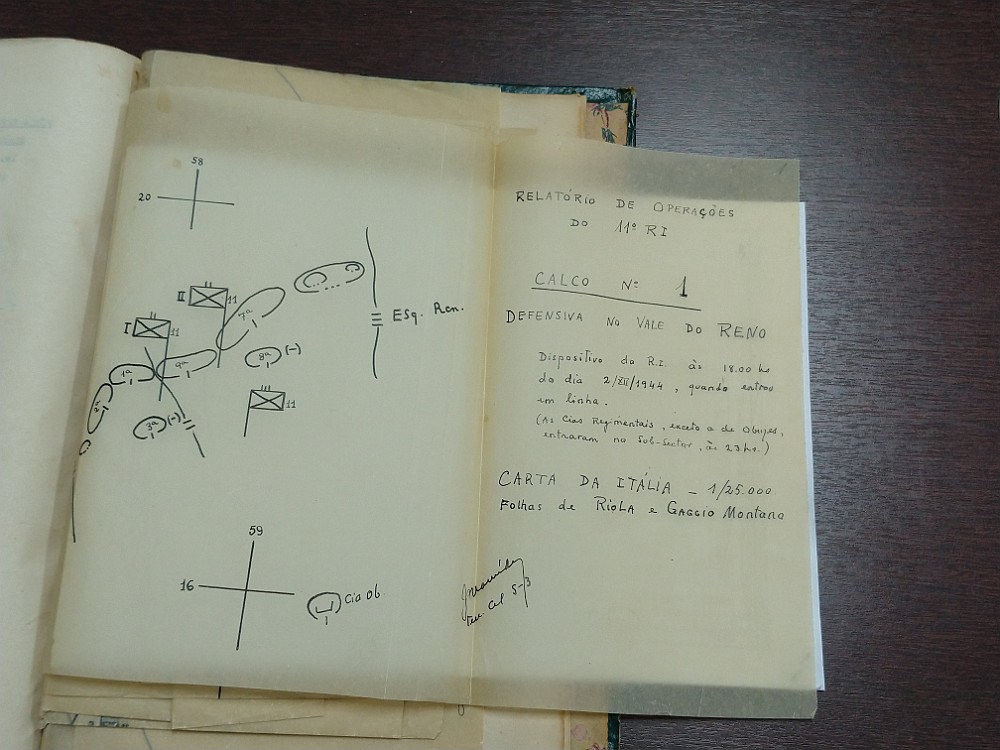 58
20
II
11
7ª
Esq. Rcn.
I
11
9ª
8ª (-)
1ª
11
2ª
3ª (-)
59
16
Cia Ob.
RELATÓRIO DE OPERAÇÕES
DO 11º RI
CALCO Nº 1
DEFENSIVA NO VALE DO RENO
Dispositivo do R.I. às 18.00 hs
do dia 2/XII/1944, quando entrou
em linha.
(As Cias Regimentais, exceto a de Obuzes,
entraram no Sub-Sector, às 23 hs.)
CARTA DA ITÁLIA - 1/25.000
Folhas de RIOLA e GAGGIO Montana
Ten. Cel S-3